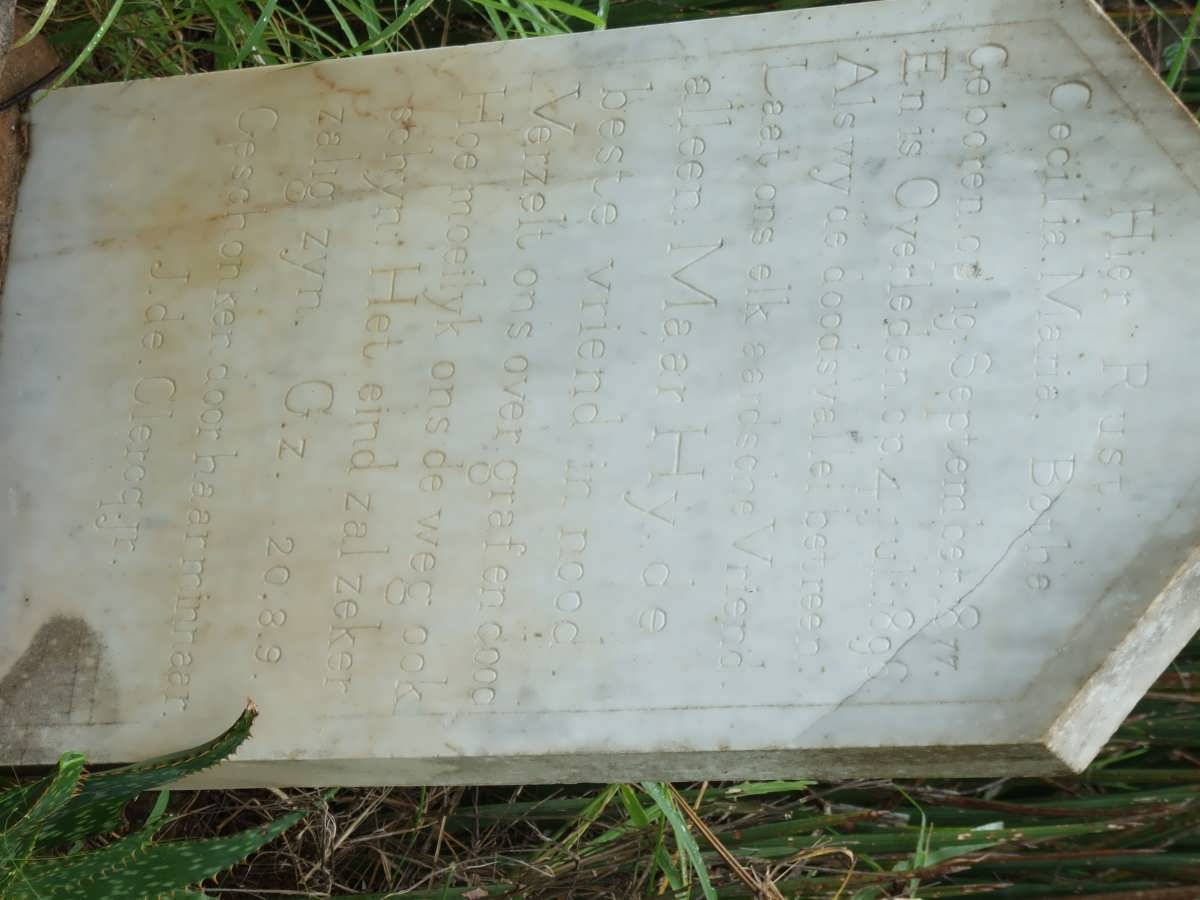 Hier Rust
Cecilia. Maria. Bothe
Geboren. de. 19. September. 1877
En is Overleden. op 4. Juli. 189
Als wy de doods valei betreen.
Laat ons elk aardsche Vriend.
alleen. Maar Hy. de
beste vriend in nood
Verzelt ons over. graf en dood
Hoe moeilyk ons de weg ook
schyn. Het eind zal zeker
zalig zyn. Gz. 20.8.9.
Geschonken door haar minnaar.
J. de. Clercq Jr